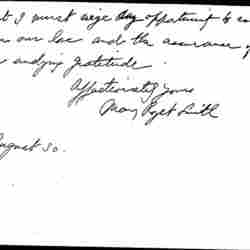 t I must seize any opportunity to
our love and the assurance
undying gratitude.
Affectionately yours
Mary Smith
August 30.